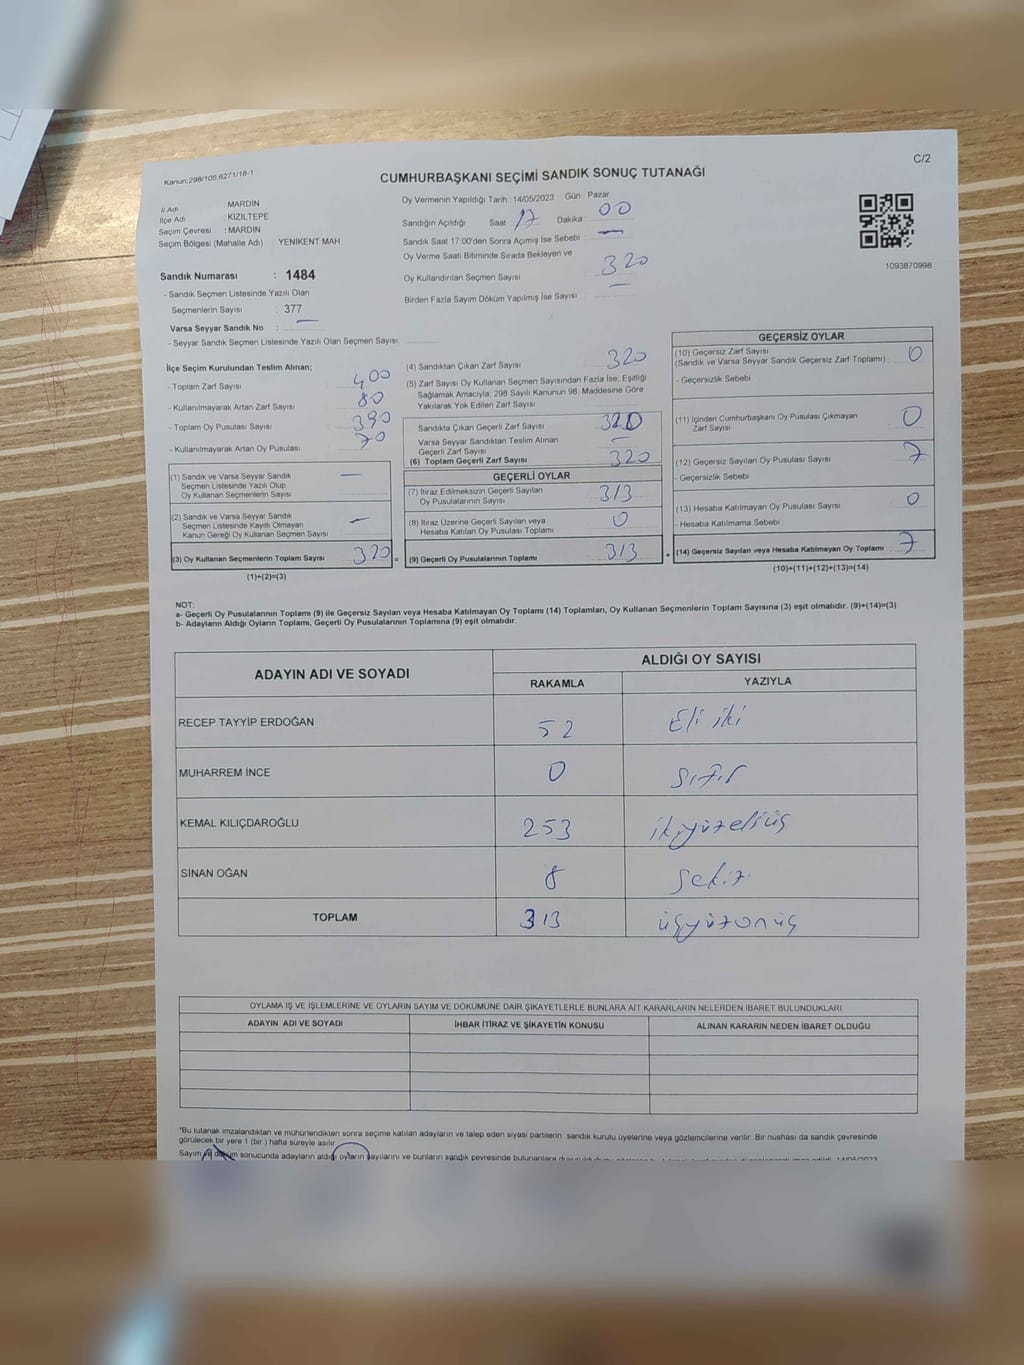 C/2
Kanun:298/105,6271/18-1
CUMHURBAŞKANI SEÇİMİ SANDIK SONUÇ TUTANAĞI
İl Adı : MARDİN
İlçe Adı : KIZILTEPE
Seçim Çevresi : MARDİN
Seçim Bölgesi (Mahalle Adı) : YENİKENT MAH
Sandık Numarası : 1484
- Sandık Seçmen Listesinde Yazılı Olan
Seçmenlerin Sayısı : 377
Varsa Seyyar Sandık No : —
- Seyyar Sandık Seçmen Listesinde Yazılı Olan Seçmen Sayısı:
Oy Vermenin Yapıldığı Tarih : 14/05/2023 Gün : Pazar
Sandığın Açıldığı Saat : 17 Dakika : 00
Sandık Saat 17:00'den Sonra Açımış İse Sebebi : —
Oy Verme Saati Bitiminde Sırada Bekleyen ve
Oy Kullandırılan Seçmen Sayısı : 320
Birden Fazla Sayım Döküm Yapılmış İse Sayısı : —
1093870998
İlçe Seçim Kurulundan Teslim Alınan;
- Toplam Zarf Sayısı 400
- Kullanılmayarak Artan Zarf Sayısı 80
- Toplam Oy Pusulası Sayısı 390
- Kullanılmayarak Artan Oy Pusulası 70
(1) Sandık ve Varsa Seyyar Sandık
Seçmen Listesinde Yazılı Olup
Oy Kullanan Seçmenlerin Sayısı —
(2) Sandık ve Varsa Seyyar Sandık
Seçmen Listesinde Kayıtlı Olmayan
Kanun Gereği Oy Kullanan Seçmen Sayısı —
(3) Oy Kullanan Seçmenlerin Toplam Sayısı 320 =
(1)+(2)=(3)
(4) Sandıktan Çıkan Zarf Sayısı 320
(5) Zarf Sayısı Oy Kullanan Seçmen Sayısından Fazla İse, Eşitliği
Sağlamak Amacıyla; 298 Sayılı Kanunun 98. Maddesine Göre
Yakılarak Yok Edilen Zarf Sayısı
Sandıkta Çıkan Geçerli Zarf Sayısı 320
Varsa Seyyar Sandıktan Teslim Alınan
Geçerli Zarf Sayısı —
(6) Toplam Geçerli Zarf Sayısı 320
GEÇERLİ OYLAR
(7) İtiraz Edilmeksizin Geçerli Sayılan
Oy Pusulalarının Sayısı 313
(8) İtiraz Üzerine Geçerli Sayılan veya
Hesaba Katılan Oy Pusulası Toplamı 0
(9) Geçerli Oy Pusulalarının Toplamı 313 +
GEÇERSİZ OYLAR
(10) Geçersiz Zarf Sayısı
(Sandık ve Varsa Seyyar Sandık Geçersiz Zarf Toplamı) : 0
- Geçersizlik Sebebi
(11) İçinden Cumhurbaşkanı Oy Pusulası Çıkmayan
Zarf Sayısı 0
(12) Geçersiz Sayılan Oy Pusulası Sayısı 7
- Geçersizlik Sebebi
(13) Hesaba Katılmayan Oy Pusulası Sayısı : 0
- Hesaba Katılmama Sebebi
(14) Geçersiz Sayılan veya Hesaba Katılmayan Oy Toplamı : 7
(10)+(11)+(12)+(13)=(14)
NOT:
a- Geçerli Oy Pusulalarının Toplamı (9) ile Geçersiz Sayılan veya Hesaba Katılmayan Oy Toplamı (14) Toplamları, Oy Kullanan Seçmenlerin Toplam Sayısına (3) eşit olmalıdır. (9)+(14)=(3)
b- Adayların Aldığı Oyların Toplamı, Geçerli Oy Pusulalarının Toplamına (9) eşit olmalıdır.
ADAYIN ADI VE SOYADI ALDIĞI OY SAYISI
RAKAMLA YAZIYLA
RECEP TAYYİP ERDOĞAN 52 Eli iki
MUHARREM İNCE 0 sıfır
KEMAL KILIÇDAROĞLU 253 ikiyüzeliüç
SİNAN OĞAN 8 sekiz
TOPLAM 313 üçyüzonüç
OYLAMA İŞ VE İŞLEMLERİNE VE OYLARIN SAYIM VE DÖKÜMÜNE DAİR ŞİKAYETLERLE BUNLARA AİT KARARLARIN NELERDEN İBARET BULUNDUKLARI
ADAYIN ADI VE SOYADI İHBAR İTİRAZ VE ŞİKAYETİN KONUSU ALINAN KARARIN NEDEN İBARET OLDUĞU
*Bu tutanak imzalandıktan ve mühürlendikten sonra seçime katılan adayların ve talep eden siyasi partilerin sandık kurulu üyelerine veya gözlemcilerine verilir. Bir nüshası da sandık çevresinde
görülecek bir yere 1 (bir ) hafta süreyle asılır
Sayım ve döküm sonucunda adayların aldığı oyların sayılarını ve bunların sandık çevresinde bulunanlara